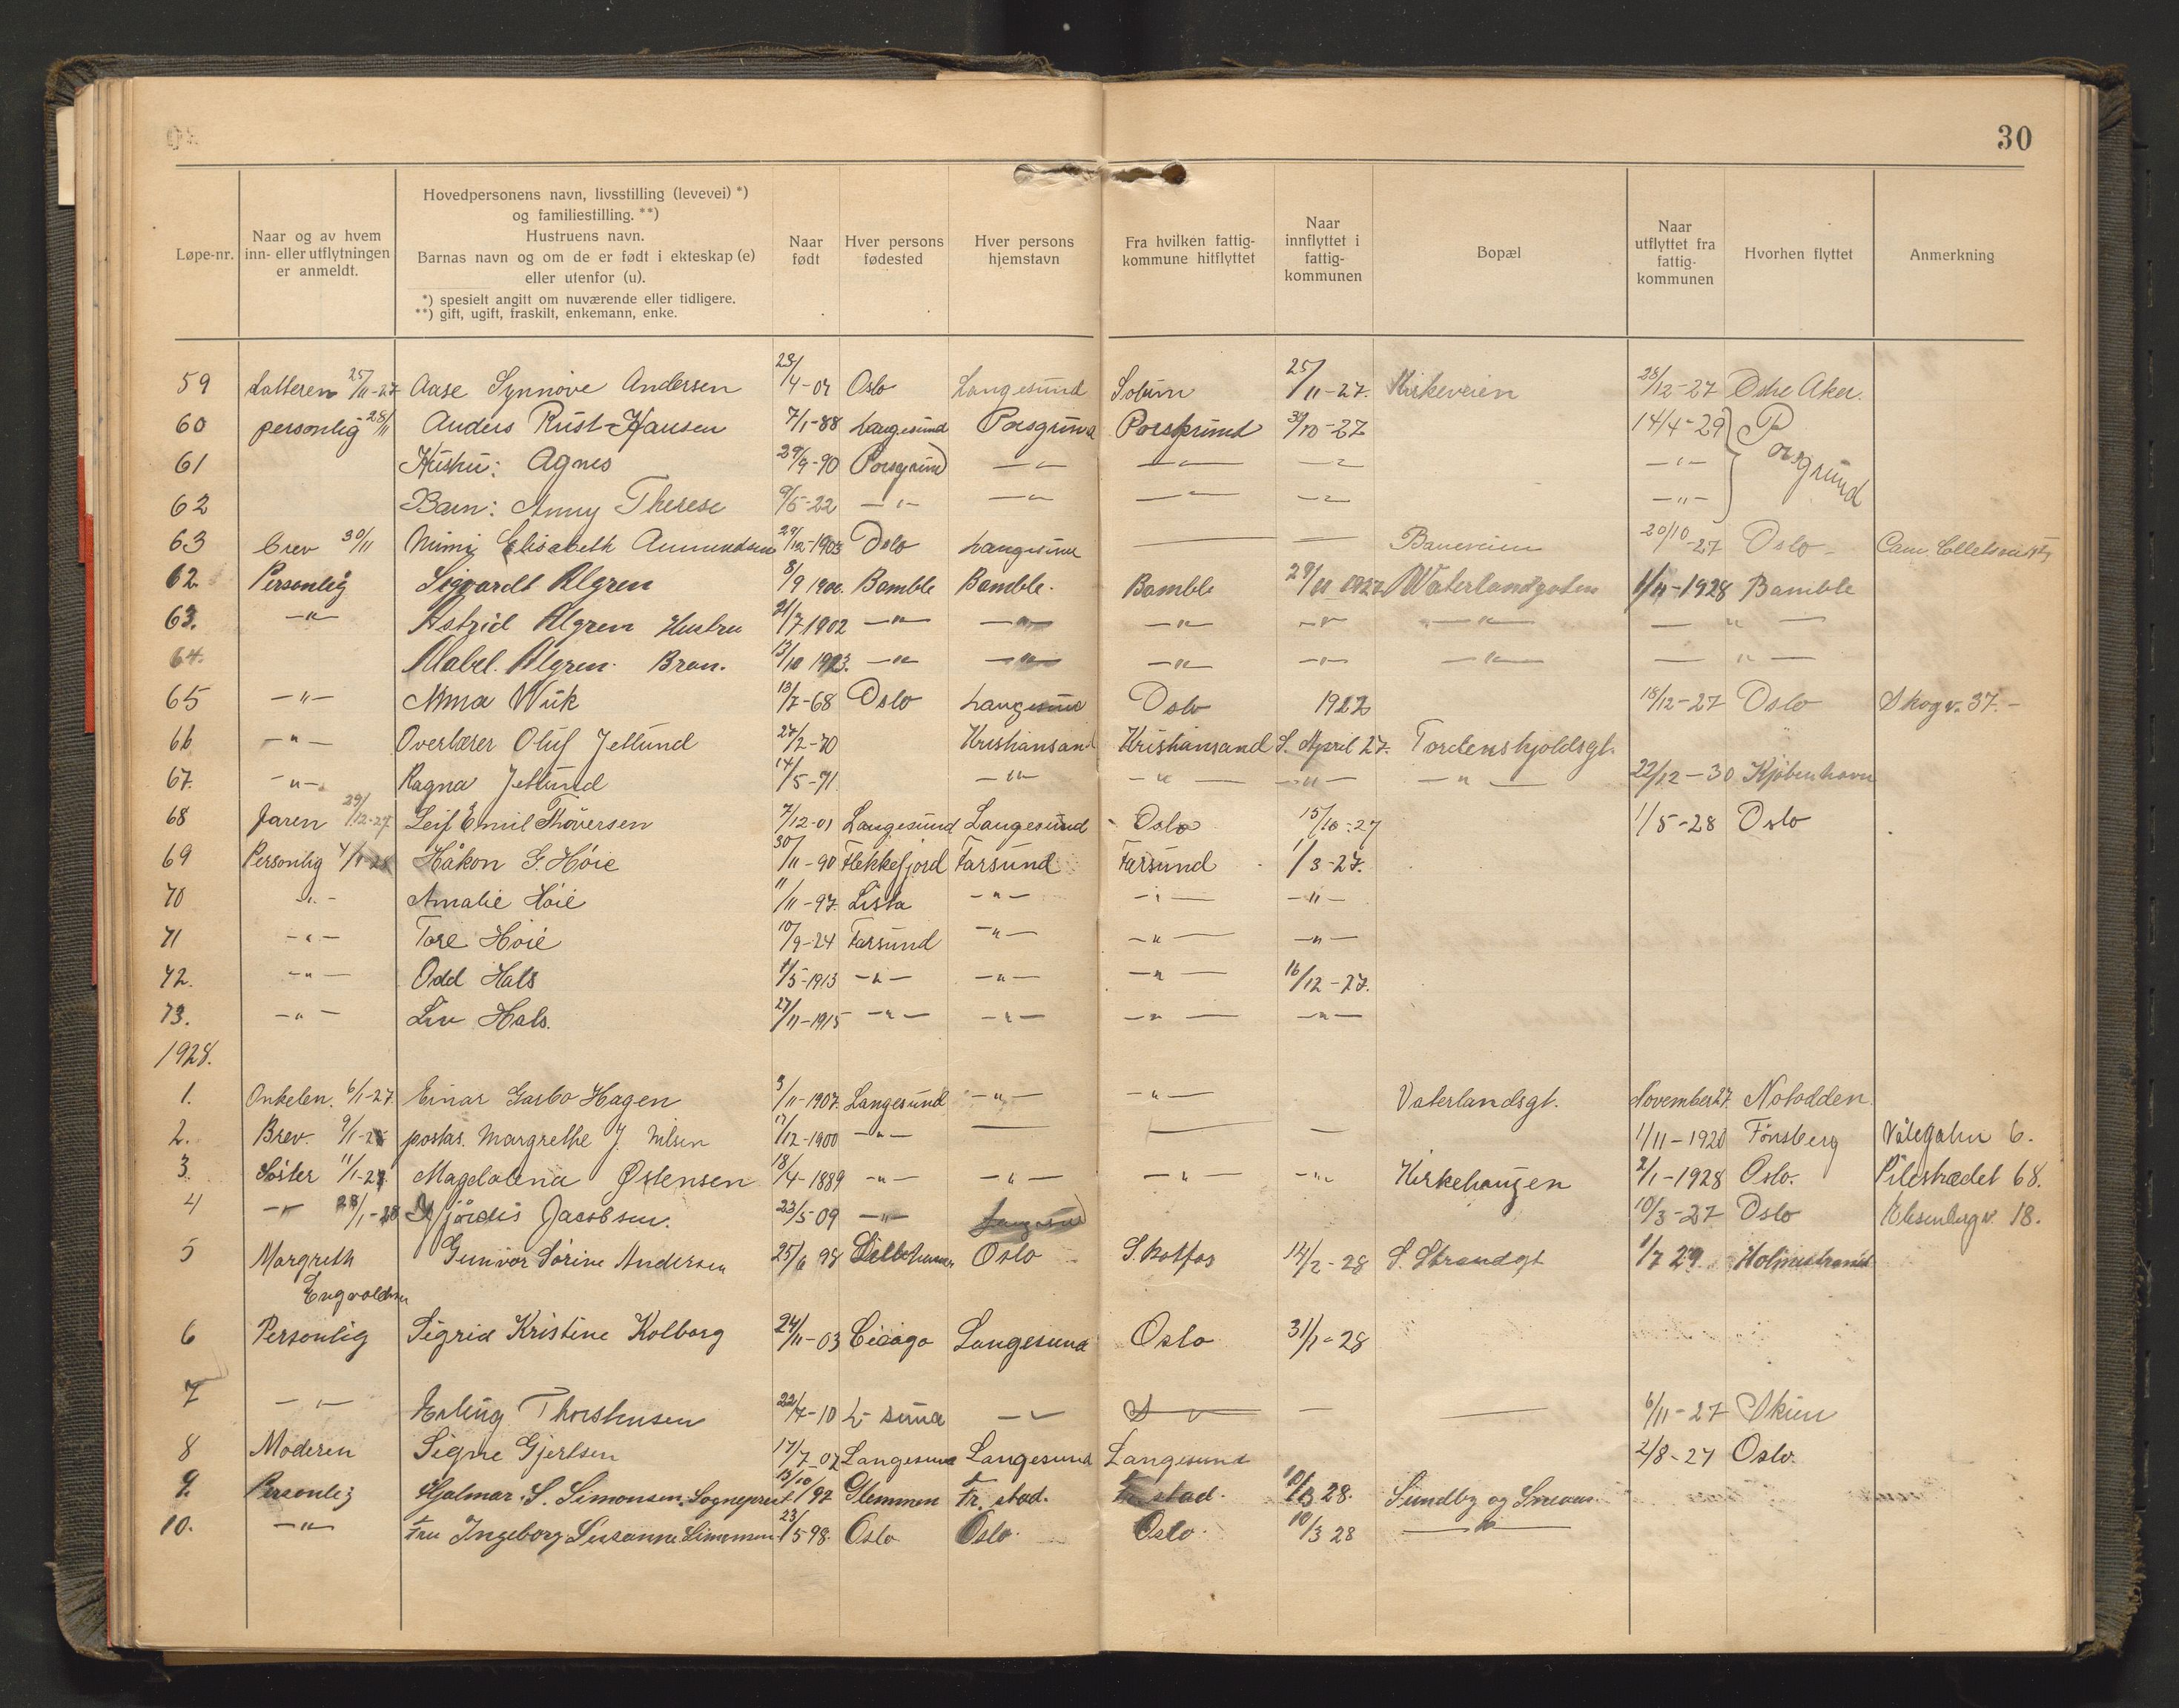 30
Løpe-nr.
Naar og av hvem inn- eller utflytningen er anmeldt.
Hovedpersonens navn, livsstilling (levevei) *)
og familiestilling. **)
Hustruens navn.
Barnas navn og om de er født i ekteskap (e)
eller utenfor (u).
*) spesielt angitt om nuværende eller tidligere.
**) gift, ugift, fraskilt, enkemann, enke.
Naar født
Hver persons fødested
Hver persons hjemstavn
Fra hvilken fattig-kommune hitflyttet
Naar innflyttet i fattig-kommunen
Bopæl
Naar utflyttet fra fattig-kommunen
Hvorhen flyttet
Anmerkning
59 25/11-27 Aase Synnøve Andersen Oslo Langesund Solum 25/11-27. Kirkeveien 28/12-27 Østre Aker.
60 personlig 28/11 Anders Rust-Hansen 7/1-88 Langesund Porsgrund Porsgrund 3/10-27 14/4-29 Porsgrund
61 Hustru: Agnes 29/9-90 Porsgrund —"— —"— —"— —"—
62 Barn: Anny Therese 9/5-22 —"— —"— —"— —"— —"—
63 Brev 30/11 Mimi Elisabeth Amundsen 29/12-1903 Oslo Langesund — — Baneveien 20/10-27 Oslo
62. Personlig Sigvardt Algren 8/9 1900. Bamble Bamble. Bamble 29/11 1927 Waterlandsgaten 1/4-1928 Bamble
63. —"— Astrid Algren Hustru 21/7 1902 —"— —"— —"— —"— —"— —"—
64. Mabel. Algren. Bran. 13/10 1923. —"— —"— —"— —"— —"— —"—
65 —"— Anna Wiik 13/7-68 Oslo Langesund Oslo 1927 18/12-27 Oslo Skogv. 37.-
66 —"— Overlærer Oluf Jetlund 27/2-70 Kristiansand Kristiansand S. April 27. Tordenskjoldsgt.
67. —"— Ragna Jetlund 14/5-71. —"— —"— —"— —"— 22/12-30 Kjøbenhavn
68 Faren 29/12-27. Leif Emil Thoversen 7/12-01 Langesund Langesund Oslo 15/10-27 1/5-28 Oslo
69 Personlig 4/1-28 Håkon G. Høie 30/11-90 Flekkefjord Farsund Farsund 1/3-27.
70 —"— Amalie Høie 11/11-97. Lista —"— —"— —"—
71 —"— Tore Høie 10/9-24 Farsund —"— —"— —"—
72. —"— Odd Hals 1/5-1913 —"— —"— —"— 16/12-27.
73. —"— Liv Hals. 27/11-1915 —"— —"— —"— —"—
1928.
1. Onkelen. 6/1-27. Einar Garbo Hagen 3/11-1907. Langesund —"— —"— Vaterlandsgt. November 27. Notodden.
2. Brev. 9/1-28 postas. Margrethe J. Nilsen 17/12-1900 —"— — — — 1/11-1928 Tønsberg 6.
3. Søster 11/1-28 Magdalena Østensen 18/4-1889 —"— —"— —"— —"— Kirkehaugen 2/1-1928 Oslo. Pilestrædet 68.
4 —"— 28/1-28 Hjørdis Jacobsen. 23/5-09 —"— Langesund 10/3-27 Oslo Elisenbergv. 18.
5 Margreth Engvoldsen Gunvor Sørine Andersen 25/6 98 Lillehammer Oslo Skotfos 14/2-28 S. Strandgt 1/7 29. Holmestrand
6 Personlig Sigrid Kristine Kolborg 24/11-03 Cicago Langesund Oslo 31/1-28
7 —"— Erling Thorstensen 22/7-10 L-sund —"— — — — 6/11-27 Skien
8 Moderen Signe Gjertsen 17/7-07 Langesund Langesund Langesund 2/8-27 Oslo.
9. Personlig Hjalmar S. Simonsen. Sogneprest 13/10/97 Glemmen Fr. stad. Fr. stad. 10/3 28. Sundby og
10. —"— Fru Ingeborg Susanne Simonsen 23/5 98. Oslo Oslo. Oslo. 10/3 28 —"—